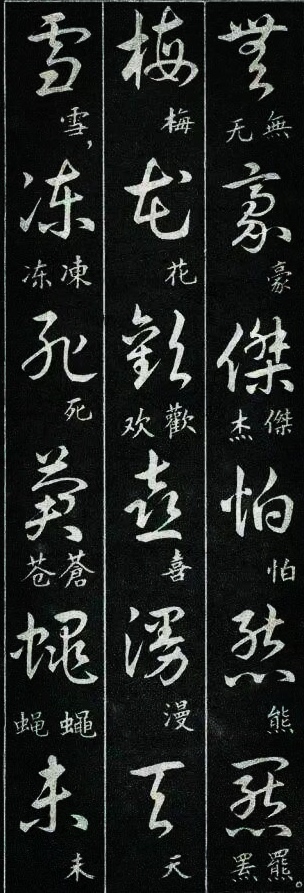 無 無 无 豪 豪 傑 傑 杰 怕 怕 熊 熊 羆 羆 罴。
梅 梅 花 花 歡 歡 欢 喜 喜 漫 漫 天 天
雪 雪, 凍 凍 冻 死 死 蒼 蒼 苍 蠅 蠅 蝇 未 未